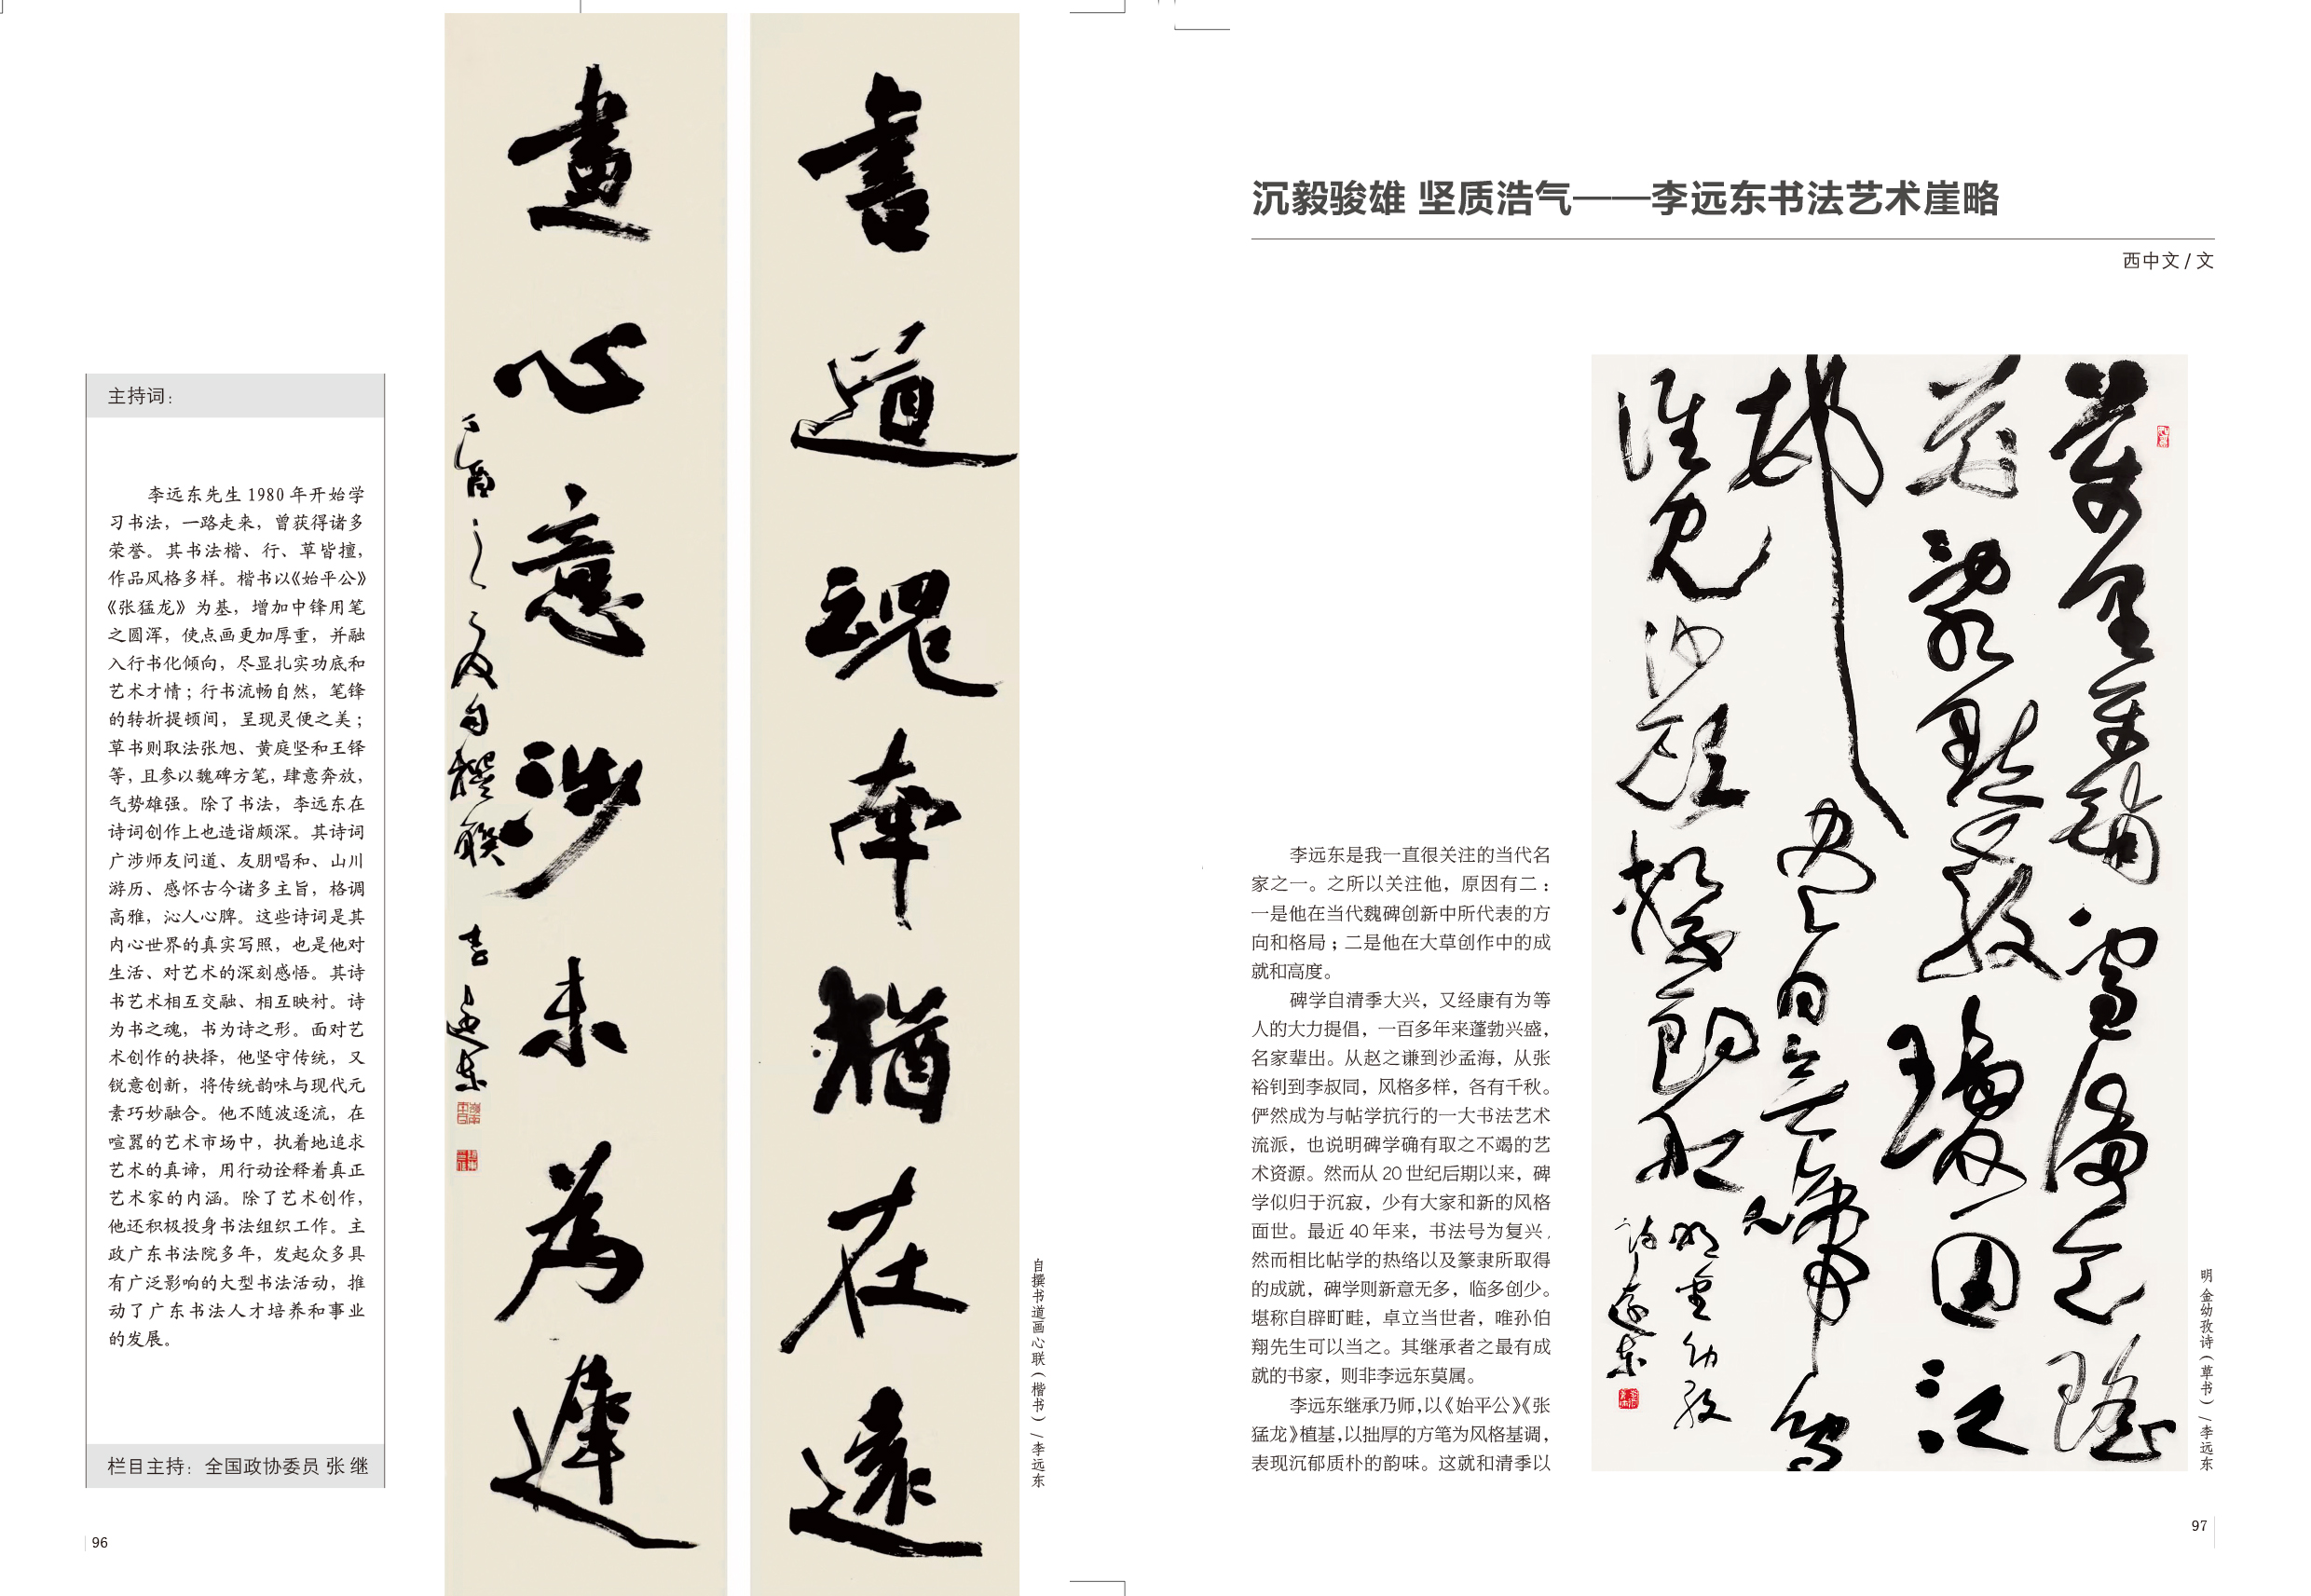 主持词：
李远东先生 1980 年开始学
习书法，一路走来，曾获得诸多
荣誉。其书法楷、行、草皆擅，
作品风格多样。楷书以《始平公》
《张猛龙》为基，增加中锋用笔
之圆浑，使点画更加厚重，并融
入行书化倾向，尽显扎实功底和
艺术才情；行书流畅自然，笔锋
的转折提顿间，呈现灵便之美；
草书则取法张旭、黄庭坚和王铎
等，且参以魏碑方笔，肆意奔放，
气势雄强。除了书法，李远东在
诗词创作上也造诣颇深。其诗词
广涉师友问道、友朋唱和、山川
游历、感怀古今诸多主旨，格调
高雅，沁人心脾。这些诗词是其
内心世界的真实写照，也是他对
生活、对艺术的深刻感悟。其诗
书艺术相互交融、相互映衬。诗
为书之魂，书为诗之形。面对艺
术创作的抉择，他坚守传统，又
锐意创新，将传统韵味与现代元
素巧妙融合。他不随波逐流，在
喧嚣的艺术市场中，执着地追求
艺术的真谛，用行动诠释着真正
艺术家的内涵。除了艺术创作，
他还积极投身书法组织工作。主
政广东书法院多年，发起众多具
有广泛影响的大型书法活动，推
动了广东书法人才培养和事业
的发展。
栏目主持：全国政协委员 张 继
96
書道魂牵猶在遠
畫心意涉未為遲
自撰联 李远东
自撰书道画心联（楷书）/李远东
沉毅骏雄 坚质浩气——李远东书法艺术崖略
西中文 / 文
李远东是我一直很关注的当代名
家之一。之所以关注他，原因有二：
一是他在当代魏碑创新中所代表的方
向和格局；二是他在大草创作中的成
就和高度。
碑学自清季大兴，又经康有为等
人的大力提倡，一百多年来蓬勃兴盛，
名家辈出。从赵之谦到沙孟海，从张
裕钊到李叔同，风格多样，各有千秋。
俨然成为与帖学抗行的一大书法艺术
流派，也说明碑学确有取之不竭的艺
术资源。然而从 20 世纪后期以来，碑
学似归于沉寂，少有大家和新的风格
面世。最近 40 年来，书法号为复兴，
然而相比帖学的热络以及篆隶所取得
的成就，碑学则新意无多，临多创少。
堪称自辟町畦，卓立当世者，唯孙伯
翔先生可以当之。其继承者之最有成
就的书家，则非李远东莫属。
李远东继承乃师，以《始平公》《张
猛龙》植基，以拙厚的方笔为风格基调，
表现沉郁质朴的韵味。这就和清季以
明 金幼孜诗（草书）/李远东
97